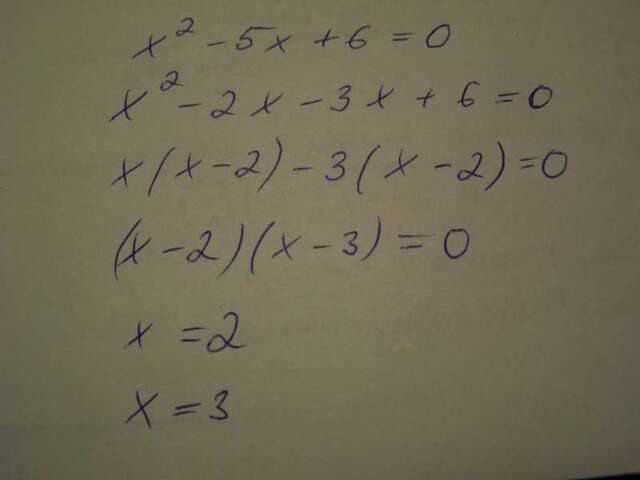 x² - 5x + 6 = 0
x² - 2x - 3x + 6 = 0
x(x-2) - 3(x-2) = 0
(x-2)(x-3) = 0
x = 2
x = 3